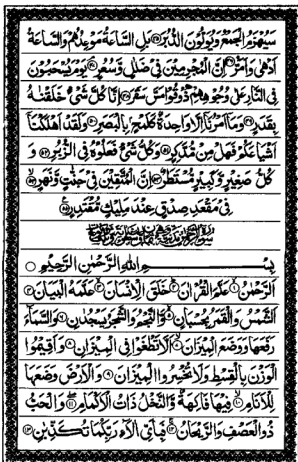 سَيُهْزَمُ الْجَمْعُ وَيُوَلُّونَ الدُّبُرَ ﴿٤٥﴾ بَلِ السَّاعَةُ مَوْعِدُهُمْ وَالسَّاعَةُ
أَدْهَىٰ وَأَمَرُّ ﴿٤٦﴾ إِنَّ الْمُجْرِمِينَ فِي ضَلَالٍ وَّسُعُرٍ ﴿٤٧﴾ يَوْمَ يُسْحَبُونَ
فِي النَّارِ عَلَىٰ وُجُوهِهِمْ ذُوقُوا مَسَّ سَقَرَ ﴿٤٨﴾ إِنَّا كُلَّ شَيْءٍ خَلَقْنَاهُ
بِقَدَرٍ ﴿٤٩﴾ وَمَا أَمْرُنَا إِلَّا وَاحِدَةٌ كَلَمْحٍ بِالْبَصَرِ ﴿٥٠﴾ وَلَقَدْ أَهْلَكْنَا
أَشْيَاعَكُمْ فَهَلْ مِنْ مُّدَّكِرٍ ﴿٥١﴾ وَكُلُّ شَيْءٍ فَعَلُوهُ فِي الزُّبُرِ ﴿٥٢﴾ وَ
كُلُّ صَغِيرٍ وَّكَبِيرٍ مُّسْتَطَرٌ ﴿٥٣﴾ إِنَّ الْمُتَّقِينَ فِي جَنَّاتٍ وَّنَهَرٍ ﴿٥٤﴾
فِي مَقْعَدِ صِدْقٍ عِنْدَ مَلِيكٍ مُّقْتَدِرٍ ﴿٥٥﴾
بِسْمِ اللَّهِ الرَّحْمَٰنِ الرَّحِيمِ
الرَّحْمَٰنُ ﴿١﴾ عَلَّمَ الْقُرْآنَ ﴿٢﴾ خَلَقَ الْإِنْسَانَ ﴿٣﴾ عَلَّمَهُ الْبَيَانَ ﴿٤﴾
الشَّمْسُ وَالْقَمَرُ بِحُسْبَانٍ ﴿٥﴾ وَّالنَّجْمُ وَالشَّجَرُ يَسْجُدَانِ ﴿٦﴾ وَالسَّمَاءَ
رَفَعَهَا وَوَضَعَ الْمِيزَانَ ﴿٧﴾ أَلَّا تَطْغَوْا فِي الْمِيزَانِ ﴿٨﴾ وَأَقِيمُوا
الْوَزْنَ بِالْقِسْطِ وَلَا تُخْسِرُوا الْمِيزَانَ ﴿٩﴾ وَالْأَرْضَ وَضَعَهَا
لِلْأَنَامِ ﴿١٠﴾ فِيهَا فَاكِهَةٌ وَّالنَّخْلُ ذَاتُ الْأَكْمَامِ ﴿١١﴾ وَالْحَبُّ
ذُو الْعَصْفِ وَالرَّيْحَانُ ﴿١٢﴾ فَبِأَيِّ آلَاءِ رَبِّكُمَا تُكَذِّبَانِ ﴿١٣﴾